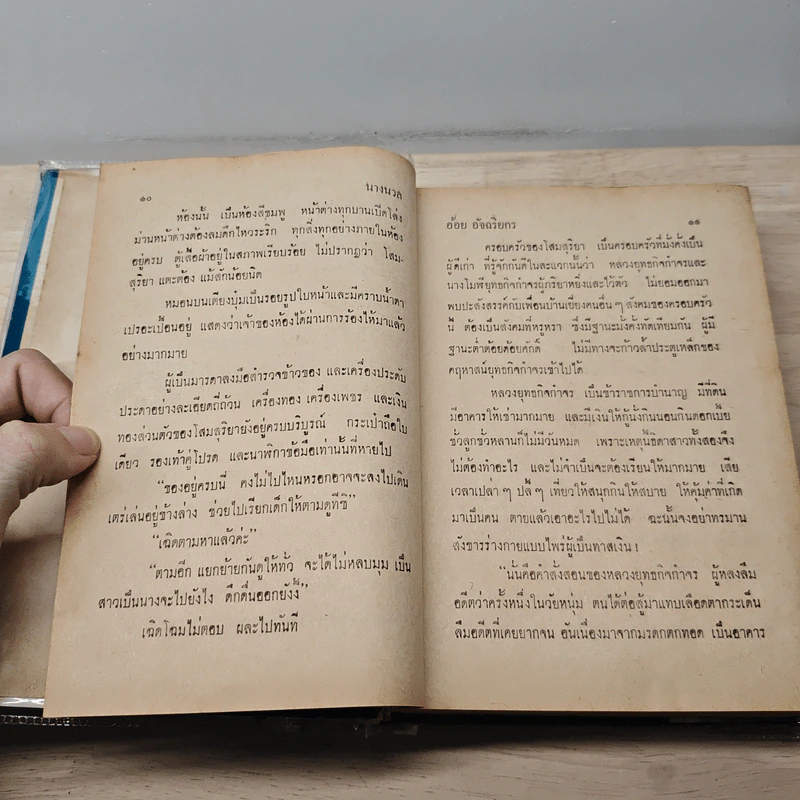 ๑๐ นางนวล
ห้องนั้น เป็นห้องสีชมพู หน้าต่างทุกบานเปิดโล่ง
ม่านหน้าต่างต้องลมดึกไหวระริก ทุกสิ่งทุกอย่างภายในห้อง
อยู่ครบ ตู้เสื้อผ้าอยู่ในสภาพเรียบร้อย ไม่ปรากฏว่า โสม-
สุริยา แตะต้อง แม้สักน้อยนิด
หมอนบนเตียงบุ๋มเป็นรอยรูปใบหน้าและมีคราบน้ำตา
เปรอะเปื้อนอยู่ แสดงว่าเจ้าของห้องได้ผ่านการร้องไห้มาแล้ว
อย่างมากมาย
ผู้เป็นมารดาลงมือสำรวจข้าวของ และเครื่องประดับ
ประดาอย่างละเอียดถี่ถ้วน เครื่องทอง เครื่องเพชร และเงิน
ทองส่วนตัวของโสมสุริยายังอยู่ครบบริบูรณ์ กระเป๋าถือใบ
เดียว รองเท้าคู่โปรด และนาฬิกาข้อมือเท่านั้นที่หายไป
“ของอยู่ครบนี่ คงไม่ไปไหนหรอกอาจจะลงไปเดิน
เตร่เล่นอยู่ข้างล่าง ช่วยไปเรียกเด็กให้ตามดูทีซิ”
“เฉิดตามหาแล้วค่ะ”
“ตามอีก แยกย้ายกันดูให้ทั่ว จะได้ไม่หลบมุม เป็น
สาวเป็นนางจะไปยังไง ดึกดื่นออกยังงี้”
เฉิดโฉมไม่ตอบ ผละไปทันที
อ้อย อัจฉริยกร ๑๑
ครอบครัวของโสมสุริยา เป็นครอบครัวที่มั่งคั่งเป็น
ผู้ดีเก่า ที่รู้จักกันดีในละแวกนั้นว่า หลวงยุทธกิจกำจรและ
นางโมพียุทธกิจกำจรผู้ภริยาหยิ่งและไว้ตัว ไม่ยอมออกมา
พบปะสังสรรค์กับเพื่อนบ้านเยี่ยงคนอื่น ๆ สังคมของครอบครัว
นี้ ต้องเป็นสังคมที่หรูหรา ซึ่งมีฐานะมั่งคั่งทัดเทียมกัน ผู้มี
ฐานะต่ำต้อยด้อยศักดิ์ ไม่มีทางจะก้าวล้ำประตูเหล็กของ
คฤหาสน์ยุทธกิจกำจรเข้าไปได้
หลวงยุทธกิจกำจร เป็นข้าราชการบำนาญ มีที่ดิน
มีอาคารให้เช่ามากมาย และมีเงินให้กู้นั่งกินนอนกินดอกเบี้ย
ชั่วลูกชั่วหลานก็ไม่มีวันหมด เพราะเหตุนี้ธิดาสาวทั้งสองจึง
ไม่ต้องทำอะไร และไม่จำเป็นจะต้องเรียนให้มากมาย เสีย
เวลาเปล่า ๆ ปลี้ ๆ เที่ยวให้สนุกกินให้สบาย ให้คุ้มค่าที่เกิด
มาเป็นคน ตายแล้วเอาอะไรไปไม่ได้ ฉะนั้นจงอย่าทรมาน
สังขารร่างกายแบบไพร่ผู้เป็นทาสเงิน !
“นั่นคือคำสั่งสอนของหลวงยุทธกิจกำจร ผู้หลงลืม
อดีตว่าครั้งหนึ่งในวัยหนุ่ม ตนได้ต่อสู้มาแทบเลือดตากระเด็น
ลืมอดีตที่เคยยากจน อันเนื่องมาจากมรดกตกทอด เป็นอาคาร